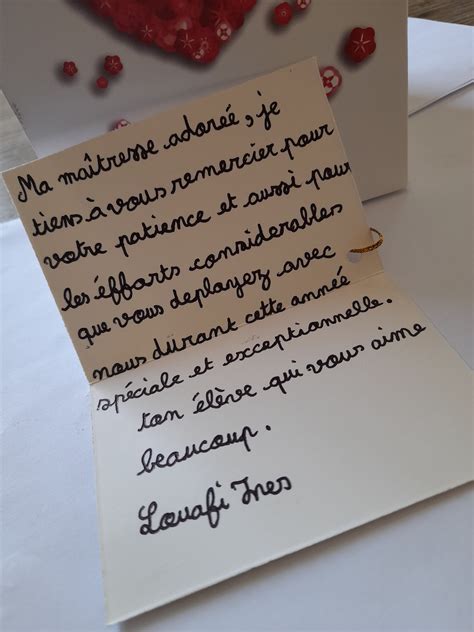 Ma maîtresse adorée, je
tiens à vous remercier pour
votre patience et aussi pour
les éfforts considerables
que vous deplayez avec
nous dùrant cette année
spéciale et exceptionnelle.
ton élève qui vous aime
beaucoup.
Louafi Ines